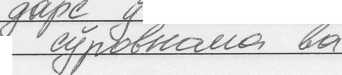 дарс ў
сўровнома ва